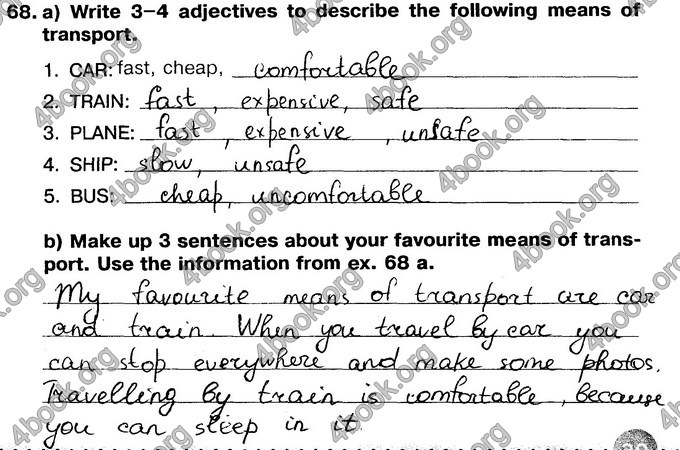 68. a) Write 3–4 adjectives to describe the following means of
transport.
1. CAR: fast, cheap, comfortable
2. TRAIN: fast, expensive, safe
3. PLANE: fast, expensive, unsafe
4. SHIP: slow, unsafe
5. BUS: cheap, uncomfortable
b) Make up 3 sentences about your favourite means of trans-
port. Use the information from ex. 68 a.
My favourite means of transport are car
and train. When you travel by car you
can stop everywhere and make some photos.
Travelling by train is comfortable, because
you can sleep in it.
4book.org